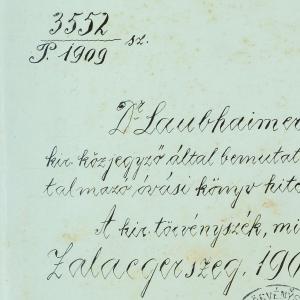 3552
P. 1909 sz.
Dr Laubhaimer
kir. közjegyző által bemutat
talmazó óvási könyv hite
A kir. törvényszék, mi
Zalaegerszeg. 190